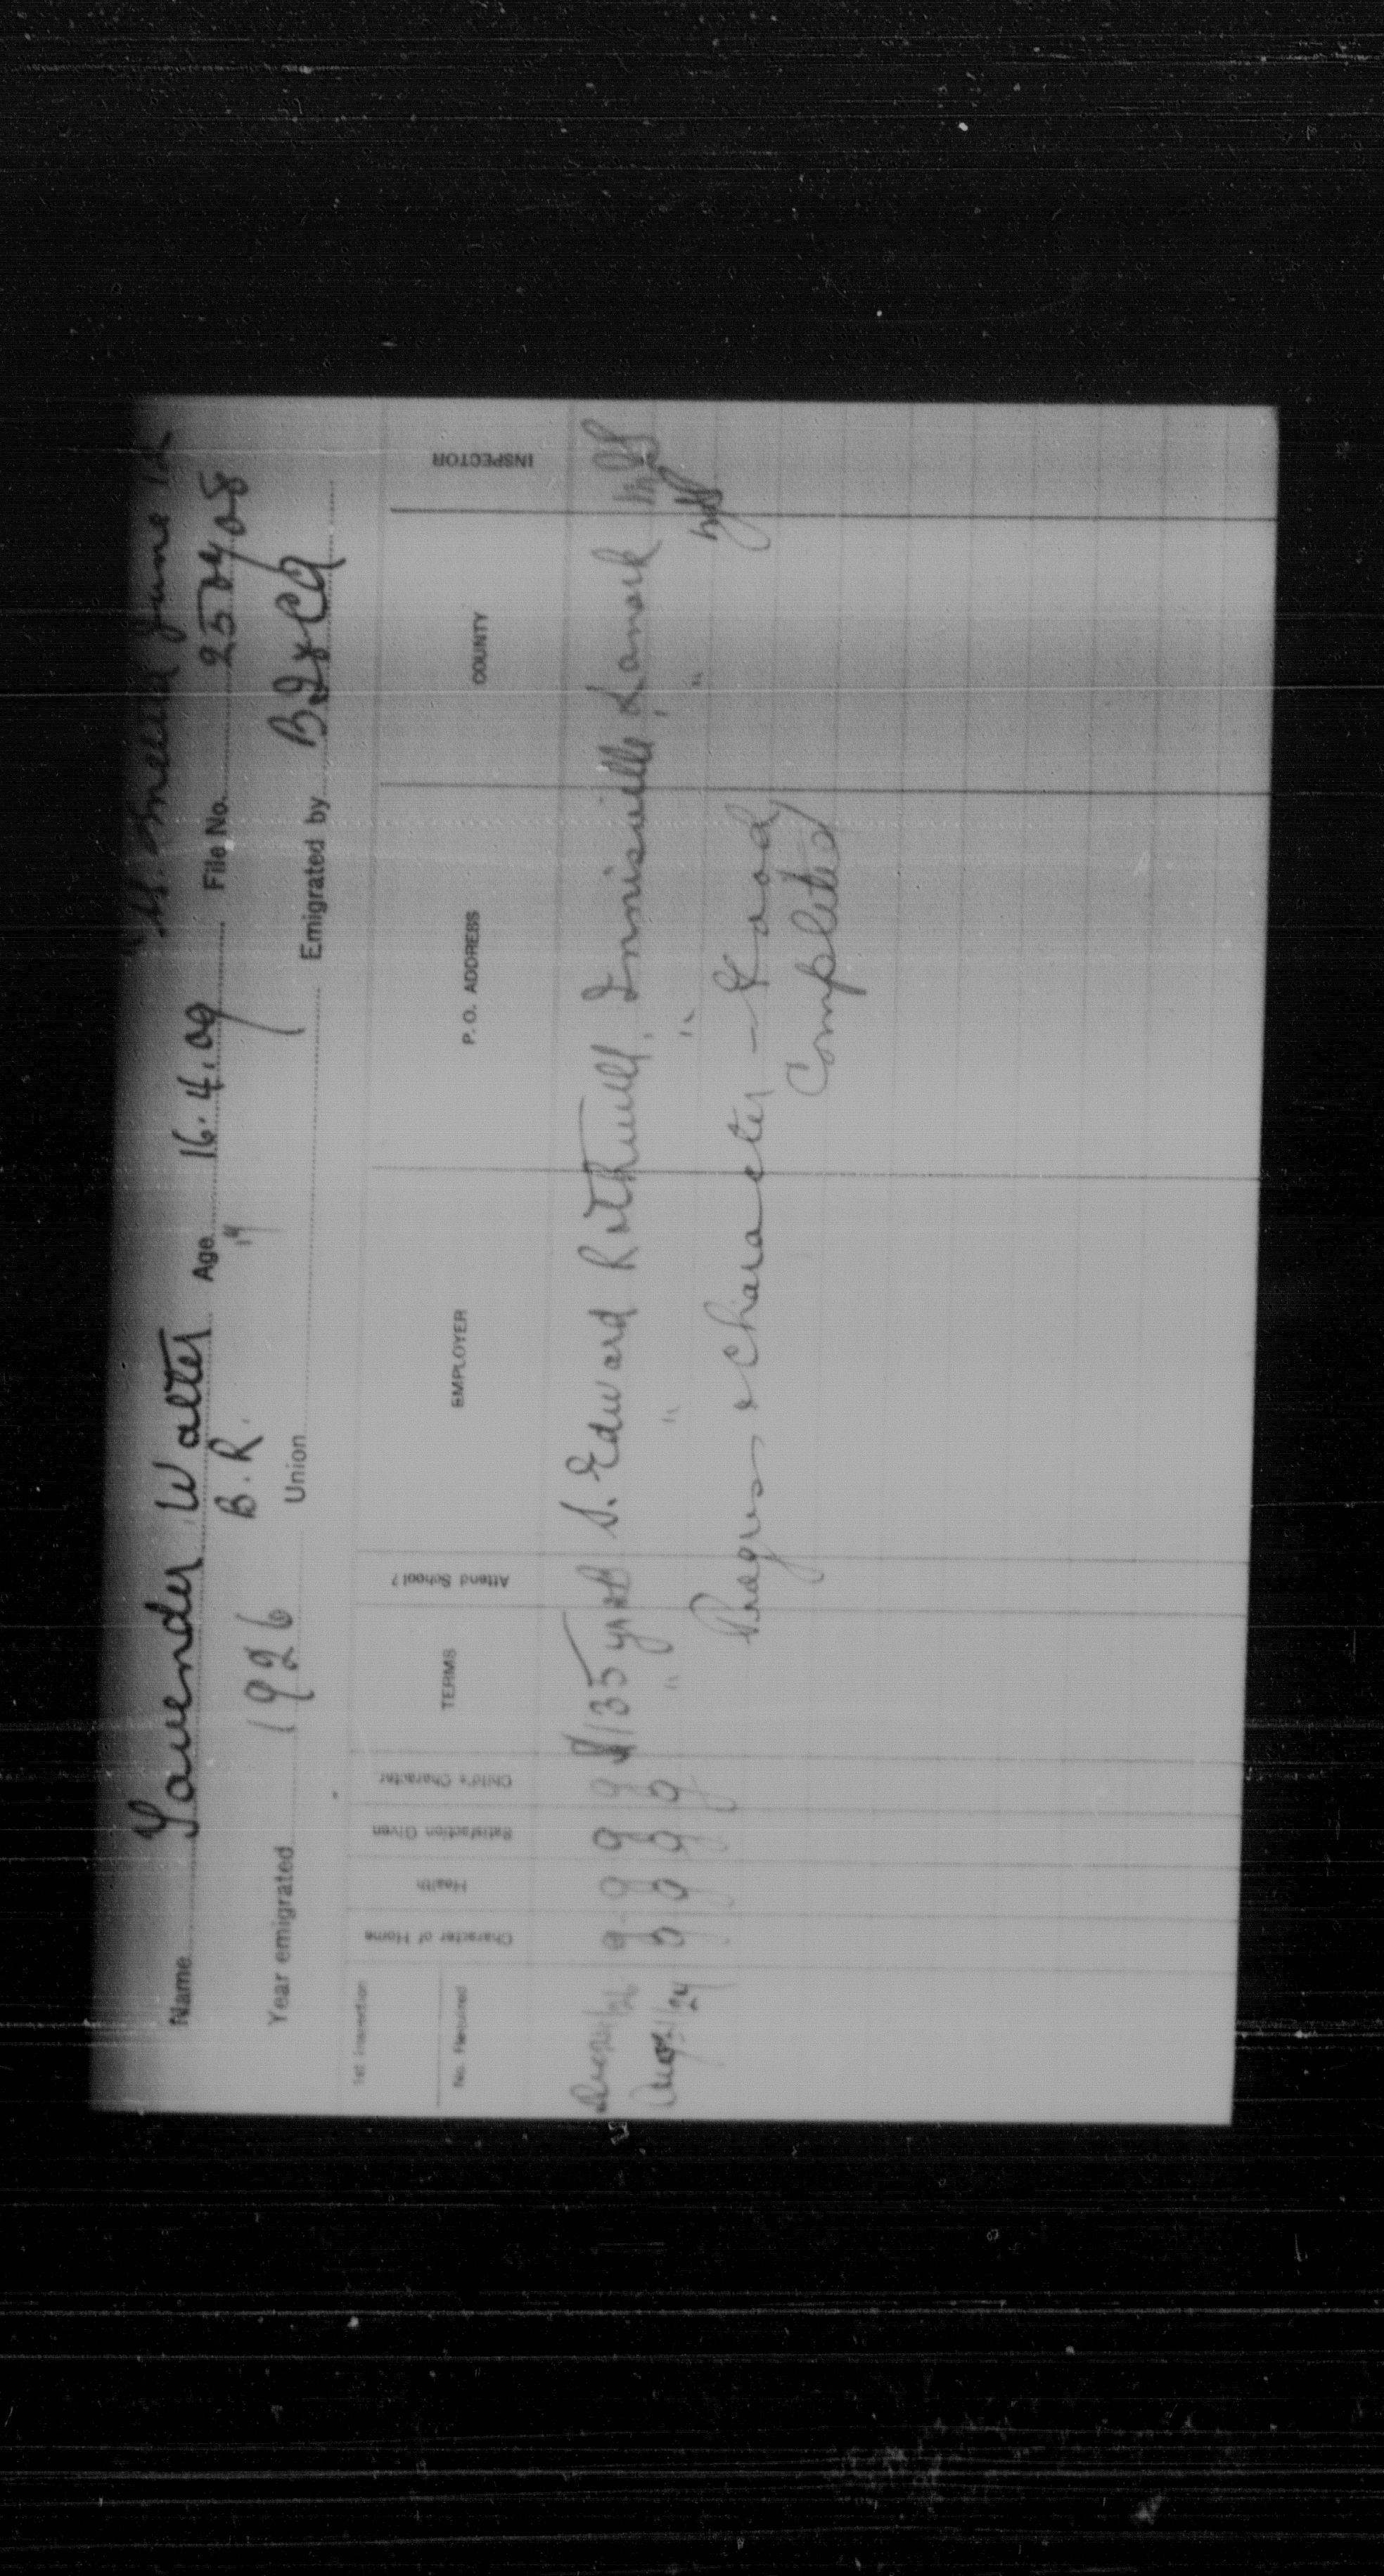 June 12
Name Lavender, Walter Age 16.4.09 File No. 250408
17
Year emigrated 1926 B.R. Union Emigrated by B.I&CA
1st Insertion
No. Required Character of Home Health Satisfaction Given Child's Character TERMS Attend School? EMPLOYER P. O. ADDRESS COUNTY INSPECTOR
g g g g $135 yr S. Edward Rothwell, Innisville, Lanark
Aug g g g g " " " "
Progress & Character - Good
Completed